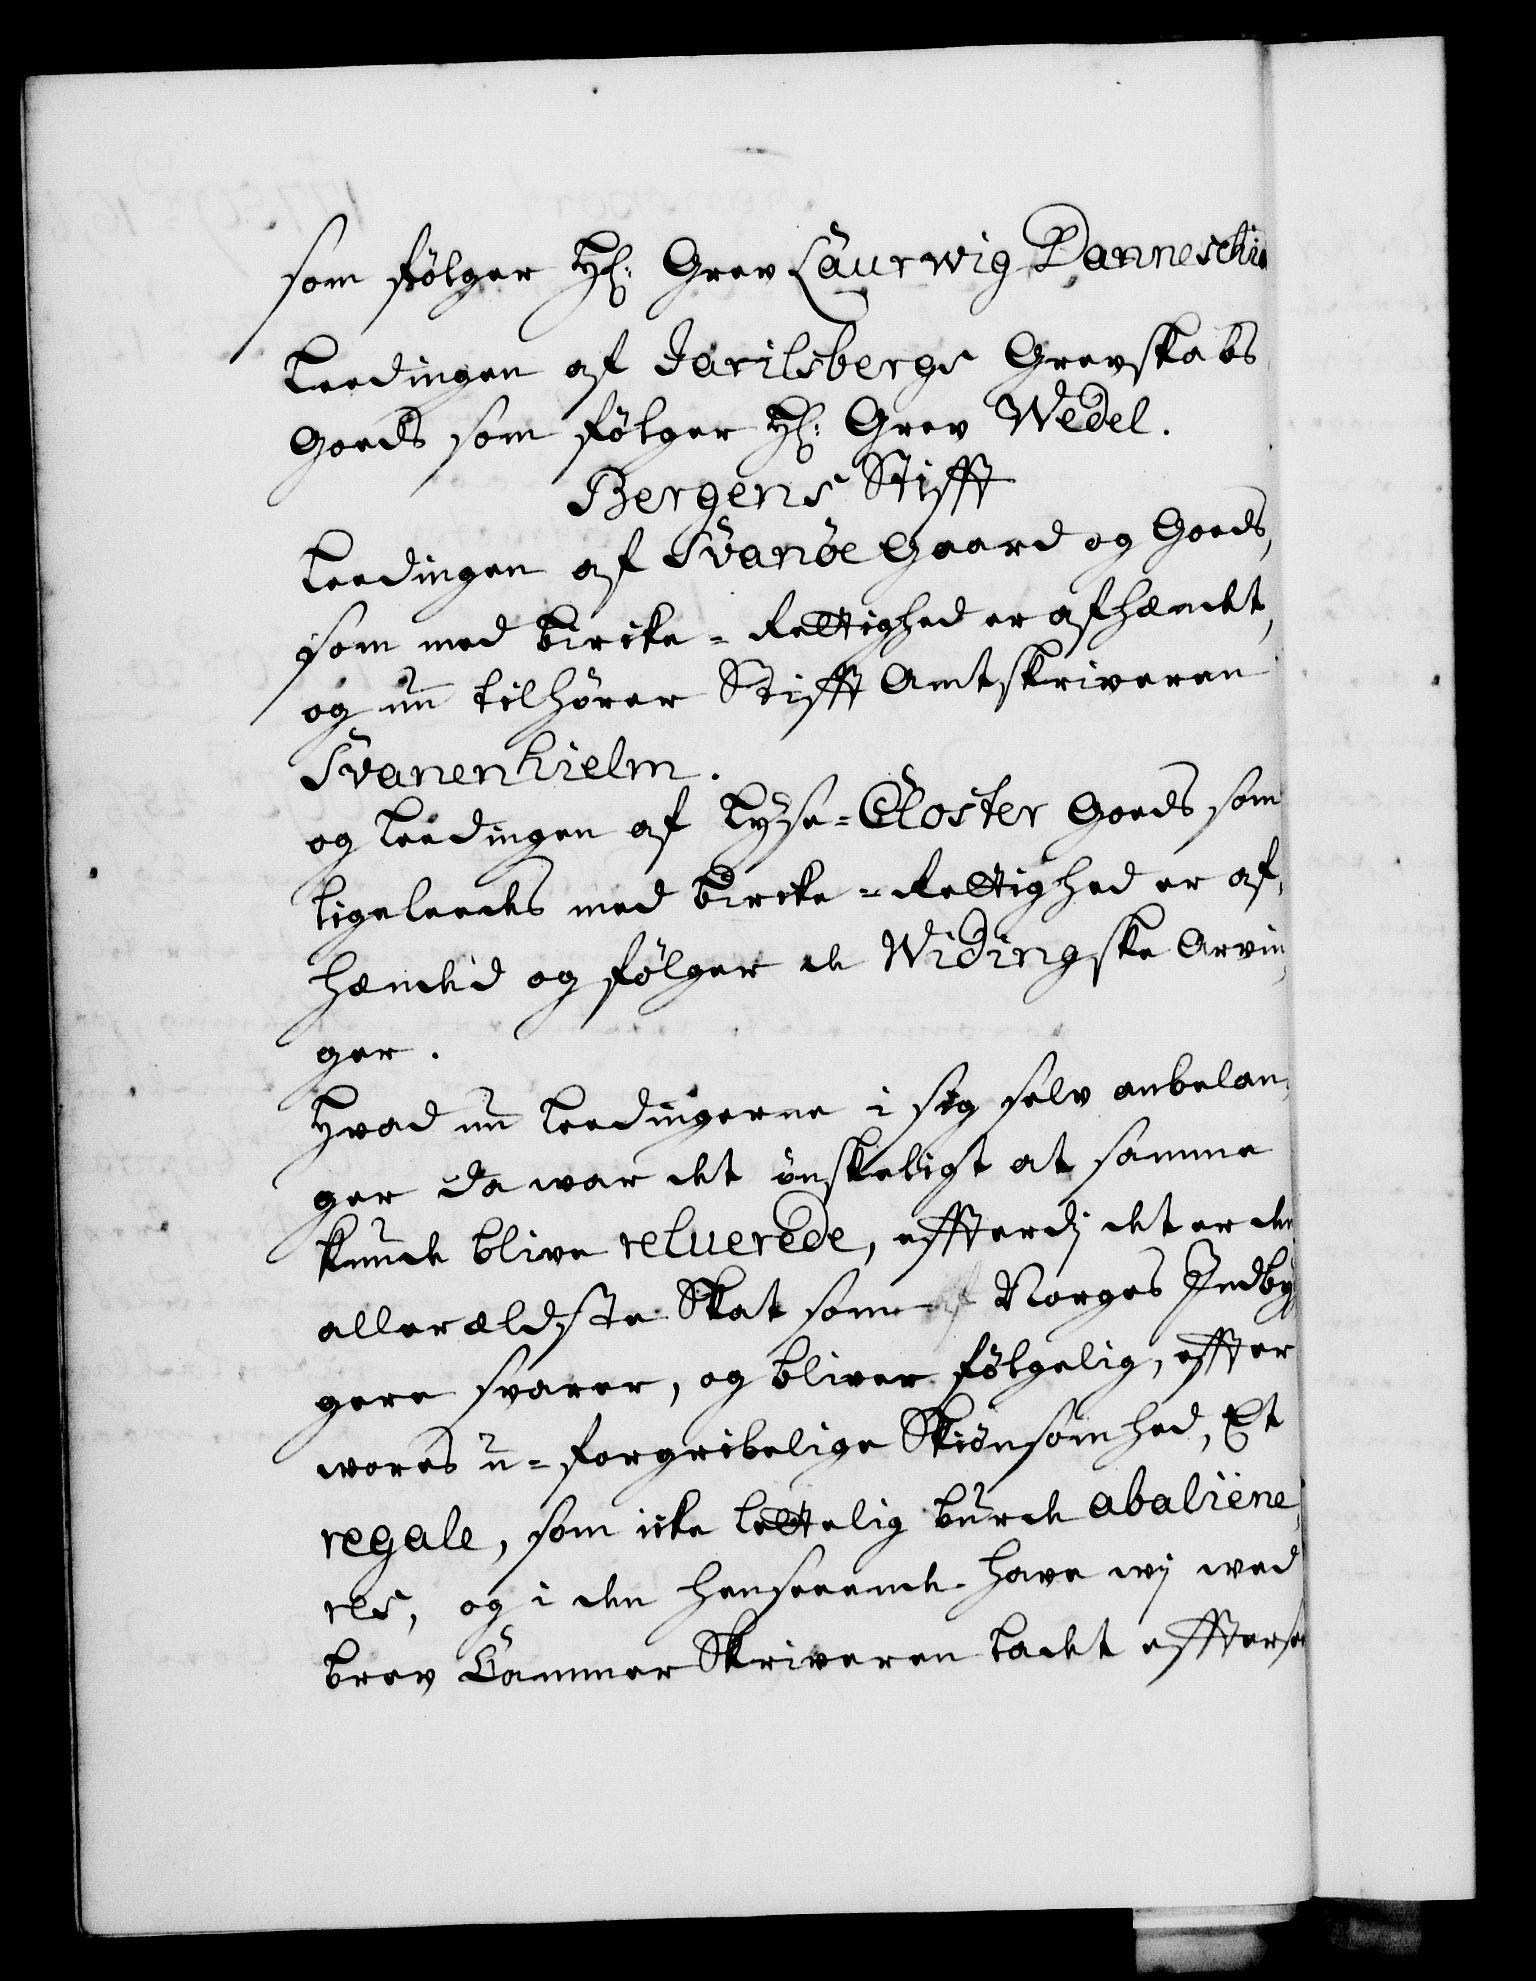 som følger H: Grev Laurwig Danneschi
Leedingen af Jarilsbergs Grevskabs
Goeds som følger H: Grev Wedel.
Bergens Stifft
Leedingen af Svanøe Gaard og Goeds,
som med Birke-Rettighed er afhændt,
og nu tilhører Stifft Amtskriveren
Svanenhielm.
og Leedingen af Lyse-Closter Goeds som
ligeleedes med Birke-Rettighed er af,
hændid og følger de Widingske Arvin,
ger.
Hvad nu Leedingerne i sig selv anbelan,
ger da war det ønskeligt at samme
kunde blive reluerede, effterdj det er den
allerældste Skat som af Norges Indby
gere svarer, og bliver følgelig, effter
wores u-forgribelige Skiønsomhed, Et
regale, som icke lettelig burde abaliene,
res, og i den henseende have wj wed
brev Cammer Skriveren ladet effterse